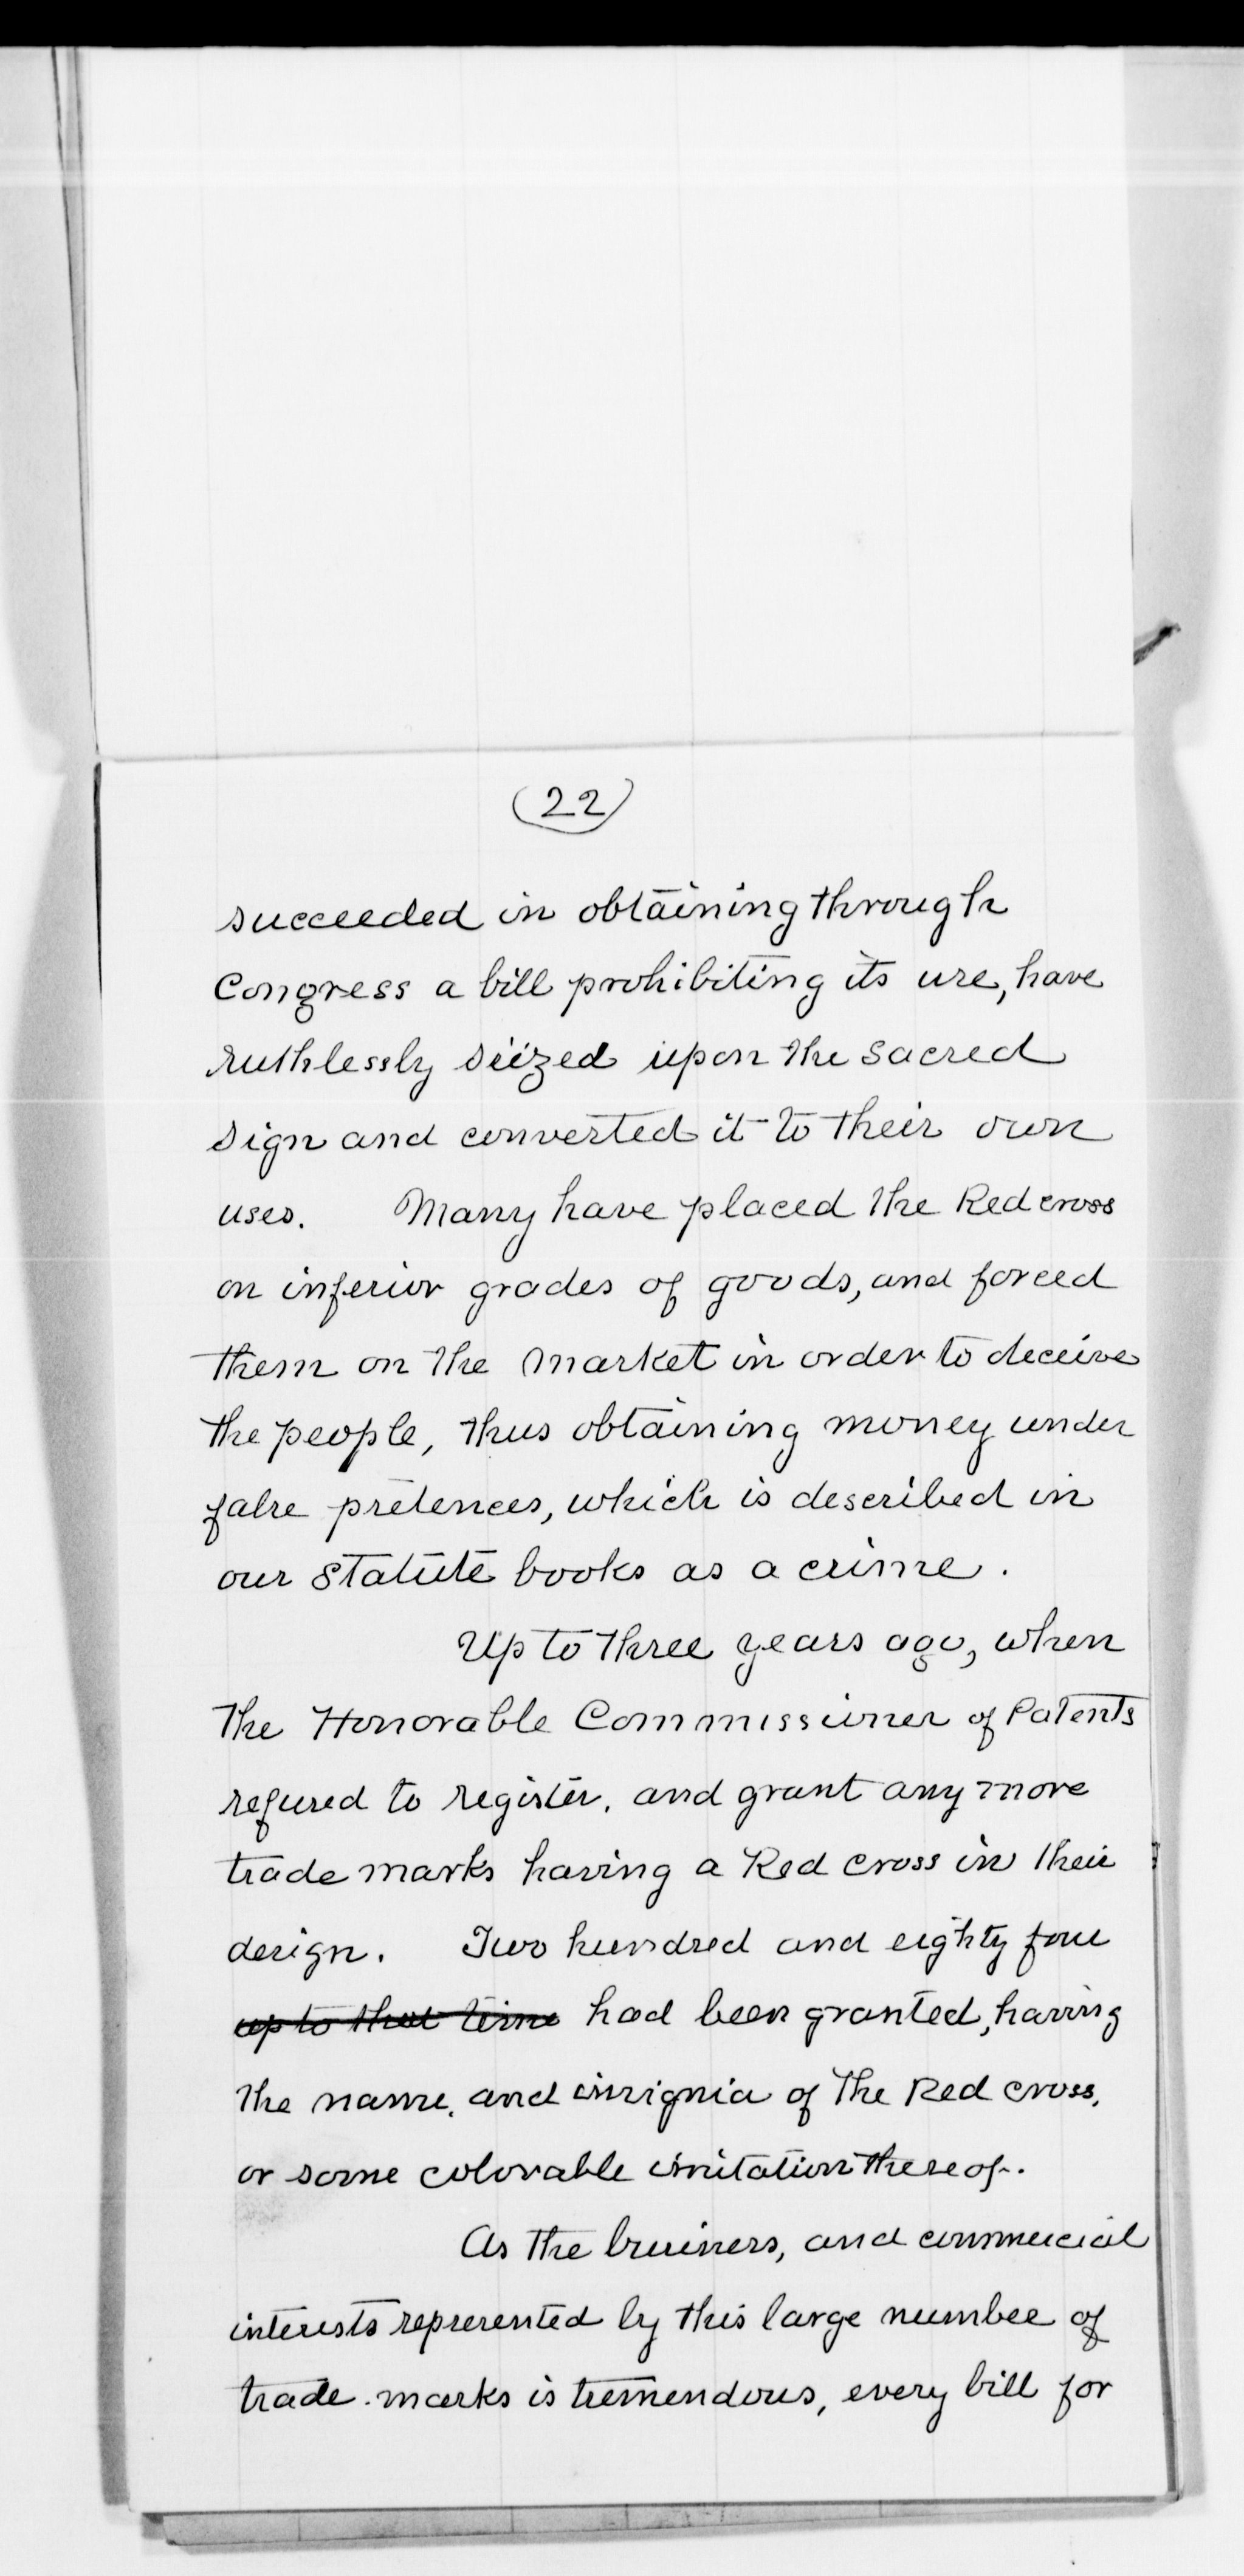 (22)
succeeded in obtaining through
Congress a bill prohibiting its use, have
ruthlessly siezed upon the sacred
sign and converted it to their own
uses. Many have placed the Red cross
on inferior grades of goods, and forced
them on the market in order to deceive
the people, thus obtaining money under
false pretences, which is described in
our statute books as a crime.
Up to three years ago, when
the Honorable Commissioner of Patents
refused to register, and grant any more
trade marks having a Red cross in their
design. Two hundred and eighty four
up to that time had been granted, having
the name, and insignia of the Red cross,
or some colorable imitation thereof.
As the business, and commercial
interests represented by this large number of
trade-marks is tremendous, every bill for